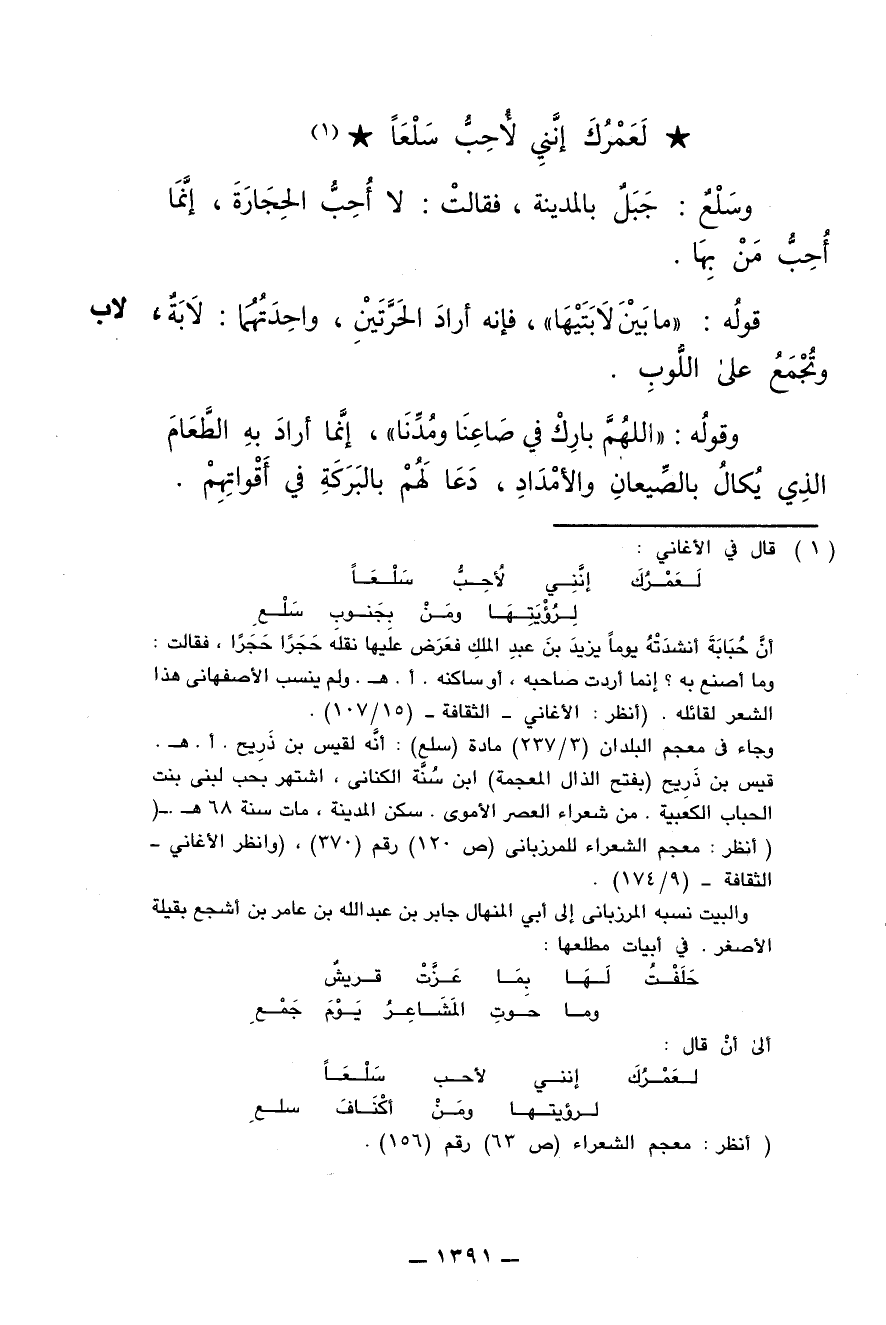 ★ لَعَمْرُكَ إنَّنيِ لأُحِبُّ سَلْعَاً ★ (١)
وسَلْعٌ : جَبَلٌ بالمدينة ، فقالتْ : لا أُحِبُّ الحِجَارَةَ ، إنَّمَا
أُحِبُّ مَنْ بِهَا .
قولُه : «ما بَيْنَ لَابَتَيْهَا» ، فإنه أرادَ الحَرَّتَينِْ ، واحِدَتُهُمَا : لَابَةٌ، لاب
وتُجْمَعُ علىٰ اللُّوبِ .
وقولُه : «اللهُمَّ بارِكْ في صَاعِنَا ومُدِّنَا» ، إنَّما أرادَ بهِ الطَّعَامَ
الذِي يُكالُ بالصِّيعانِ والأمْدَادِ ، دَعَا لَهُمْ بالبَرَكَةِ في أَقْواتِهِمْ .
( ١ ) قال في الأغاني :
لَـعَمْـرُكَ إنَّنِـي لأُحِـبُّ سَـلْـعَـاً
لِـرُؤْيَتِـهَـا ومَـنْ بِجَنـوبِ سَلْـعِ
أنَّ حُبَابَةَ أنشدَتْهُ يوماً يزيدَ بنَ عبدِ الملكِ فعَرَض عليها نقله حَجَرًا حَجَرًا ، فقالت :
وما أصنع به ؟ إنما أردت صاحبه ، أو ساكنه . أ . هـ . ولم ينسب الأصفهانى هذا
الشعر لقائله . (أنظر : الأغاني ـ الثقافة ـ (١٠٧/١٥) .
وجاء فى معجم البلدان (٢٣٧/٣) مادة (سلع) : أنَّه لقيس بن ذَرِيح . أ . هـ .
قيس بن ذَرِيح (بفتح الذال المعجمة) ابن سُنَّة الكنانى ، اشتهر بحب لبنى بنت
الحباب الكعبية . من شعراء العصر الأموى . سكن المدينة ، مات سنة ٦٨ هـ .ـ(
( أنظر : معجم الشعراء للمرزبانى (ص ١٢٠) رقم (٣٧٠) ، (وانظر الأغاني ـ
الثقافة ـ (١٧٤/٩) .
والبيت نسبه المرزبانى إلى أبي المنهال جابر بن عبدالله بن عامر بن أشجع بقيلة
الأصغر . في أبيات مطلعها :
حَلَفْـتُ لَـهَـا بِمَـا عَـزَّتْ قـريـشٌ
ومـا حـوتِ المَشَـاعِـرُ يَـوْمَ جَمْـعِ
ألىٰ أنْ قال :
لـعَمْـرُكَ إننـي لأحـب سَـلْـعَـاً
لـرؤيتـهـا ومَـنْ أكْنَـافَ سلـعِ
( أنظر : معجم الشعراء (ص ٦٣) رقم (١٥٦) .
ـ ١٣٩١ ـ